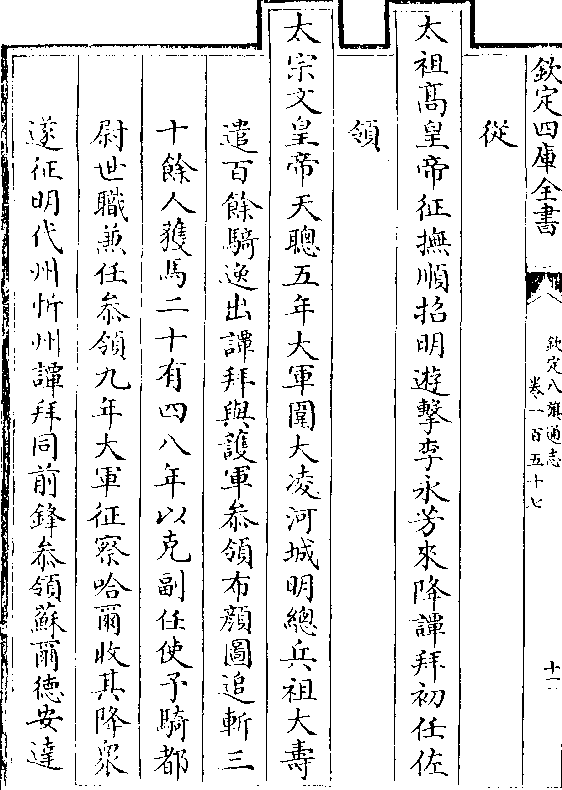 欽定四庫全書
欽定八旗通志
卷一百五十七
從
太祖髙皇帝征撫順招明遊擊李永芳來降譚拜初任佐
領
太宗文皇帝天聰五年大軍圍大凌河城明總兵祖大壽
遣百餘騎逸出譚拜與護軍叅領布顔圖追斬三
十餘人獲馬二十有四八年以克副任使予騎都
尉世職兼任叅領九年大軍征察哈爾收其降衆
遂征明代州忻州譚拜同前鋒叅領蘇爾德安達